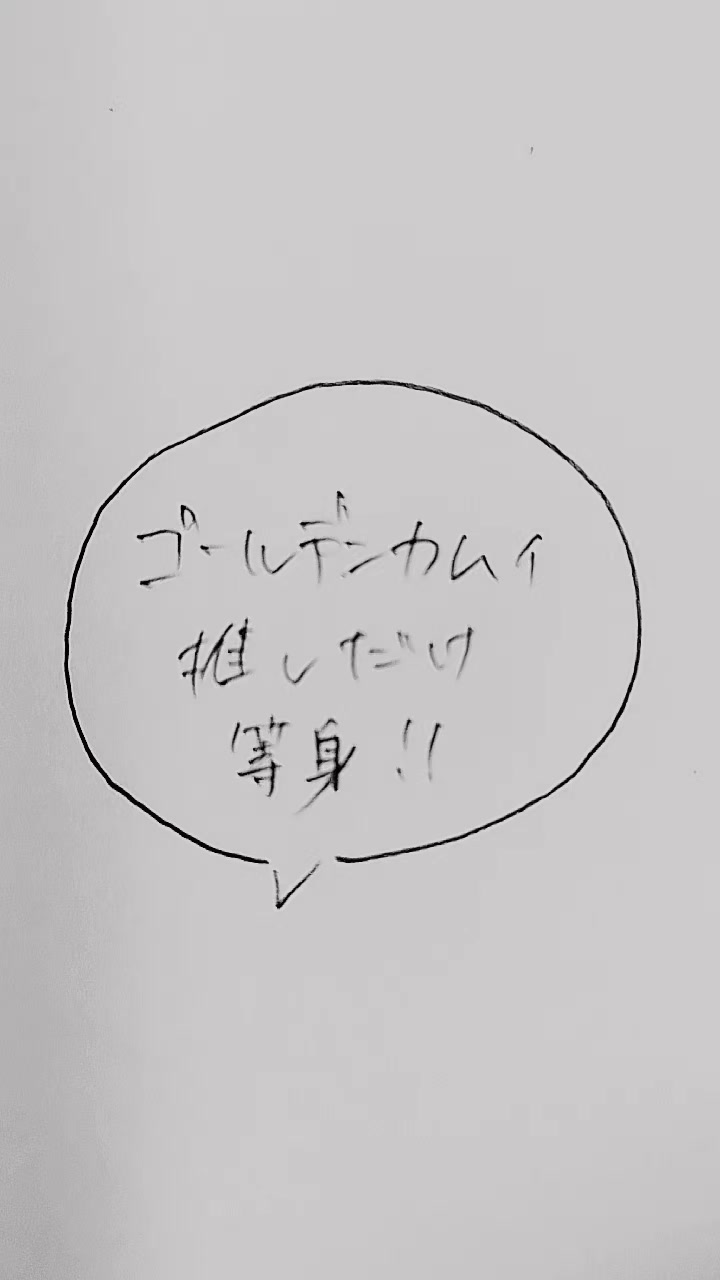 ゴールデンカムイ
推しだけ
等身!!